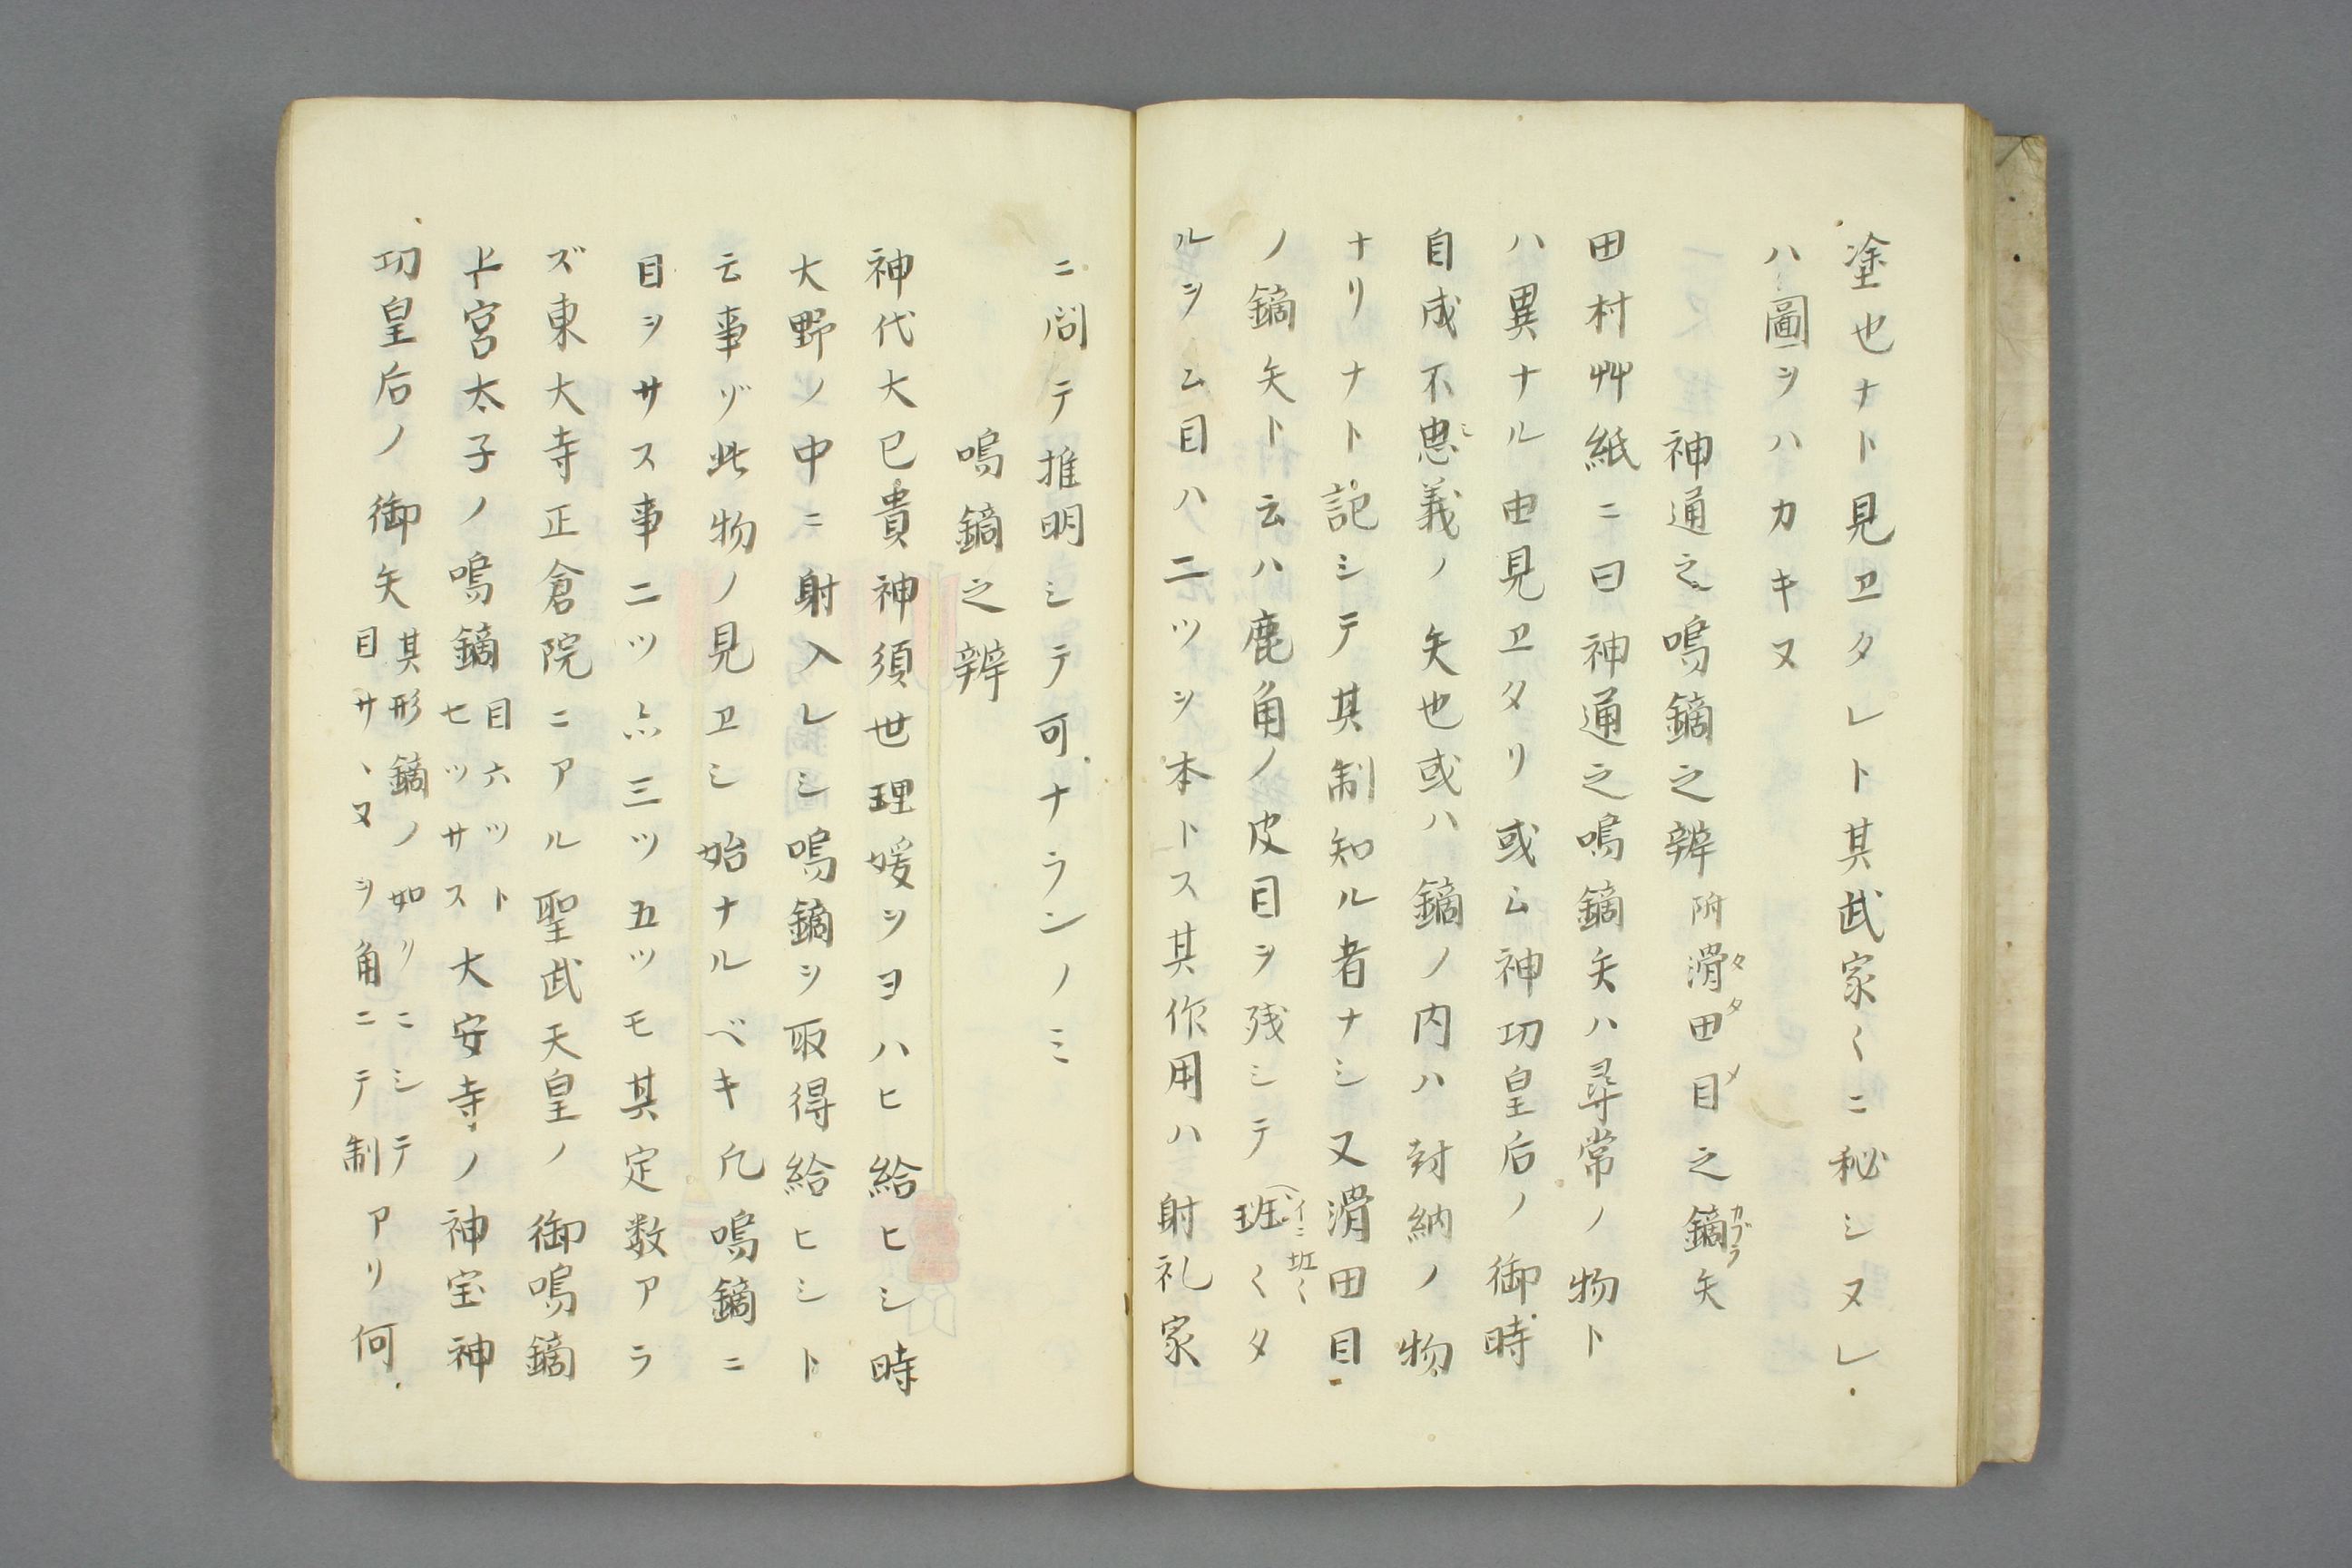 塗也ナト見ヱタレト其武家〱ニ秘シヌレ
ハ圖ヲハカキヌ
神通之鳴鏑之辨 附滑田目之鏑矢
タタメ
カブラ
田村艸紙ニ曰神通之鳴鏑矢ハ尋常ノ物ト
ハ異ナル由見ヱタリ或ム神功皇后ノ御時
自成不思義ノ矢也或ハ鏑ノ内ハ封納ノ物
ミ
ナリナト記シテ其制知ル者ナシ又滑田目
ノ鏑矢ト云ハ鹿角ノ皮目ヲ残シテ班〱タ
イニ
〱
ルヲム目ハ二ツヲ本トス其作用ハ射礼家
ニ問テ推明シテ可ナランノミ
鳴鏑之辨
神代大已貴神須世理媛ヲヨハヒ給ヒシ時
大野ノ中ニ射入レシ鳴鏑ヲ取得給ヒシト
云事ゾ此物ノ見ヱシ始ナルベキ凡鳴鏑ニ
目ヲサス事二ツ六三ツ五ツモ其定数アラ
ズ東大寺正倉院ニアル聖武天皇ノ御鳴鏑
上宮太子ノ鳴鏑 目六ツト 大安寺ノ神宝神
セツサス
功皇后ノ御矢 其形鏑ノ如リニシテ
目サヽヌヲ角ニテ制アリ何